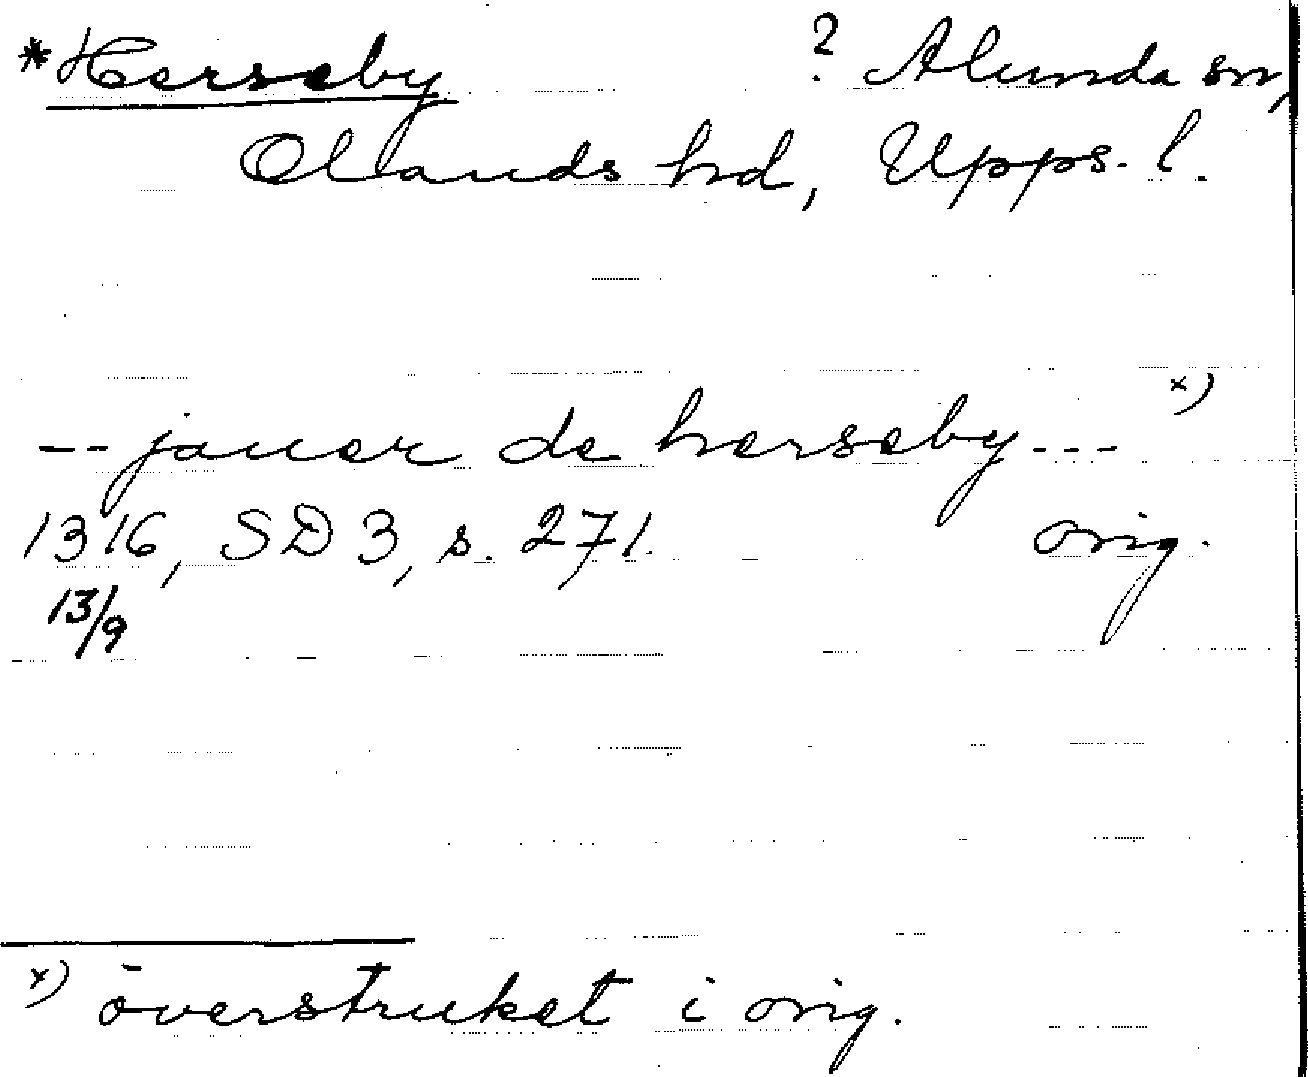 *Herseby ? Alunda sn,
Olands hd, Upps. l.
-- janer de herseby --- x)
1316, SD 3, s. 271. orig.
13/9
x) överstruket i orig.